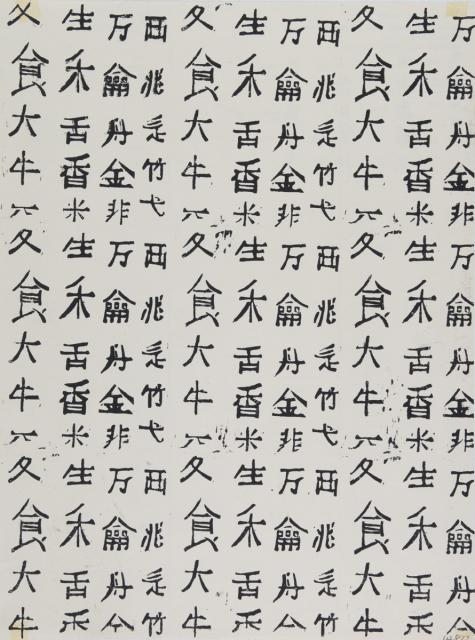 万龠丹金非万龠丹金非万龠丹
生禾舌香米生禾舌香米生禾舌
夂食大牛六夂食大牛六夂食大牛
西兆辵竹弋西兆辵竹弋西兆辵竹
万龠丹金非万龠丹金非万龠丹
生禾舌香米生禾舌香米生禾舌
夂食大牛六夂食大牛六夂食大牛
西兆辵竹弋西兆辵竹弋西兆辵竹
万龠丹金非万龠丹金非万龠丹
生禾舌香米生禾舌香米生禾舌
夂食大牛六夂食大牛六夂食大牛